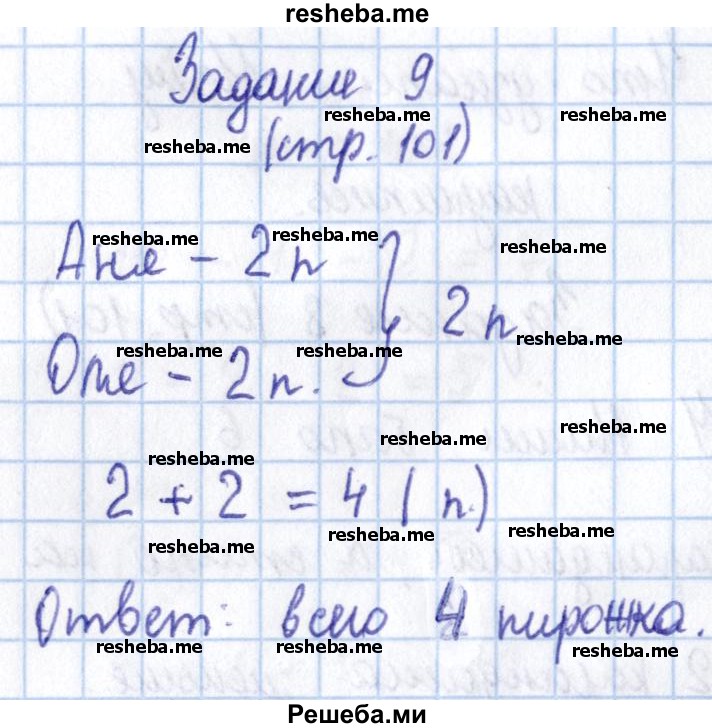 resheba.me
Задание 9
resheba.me resheba.me
resheba.me
(стр. 101)
resheba.me resheba.me
resheba.me
Аня - 2 п
2 п
resheba.me
resheba.me resheba.me
Оле - 2 п.
resheba.me
resheba.me
resheba.me
2 + 2 = 4 ( п.)
resheba.me resheba.me
resheba.me
Ответ: всего 4 пирожка.
resheba.me resheba.me resheba.me
Решеба.ми